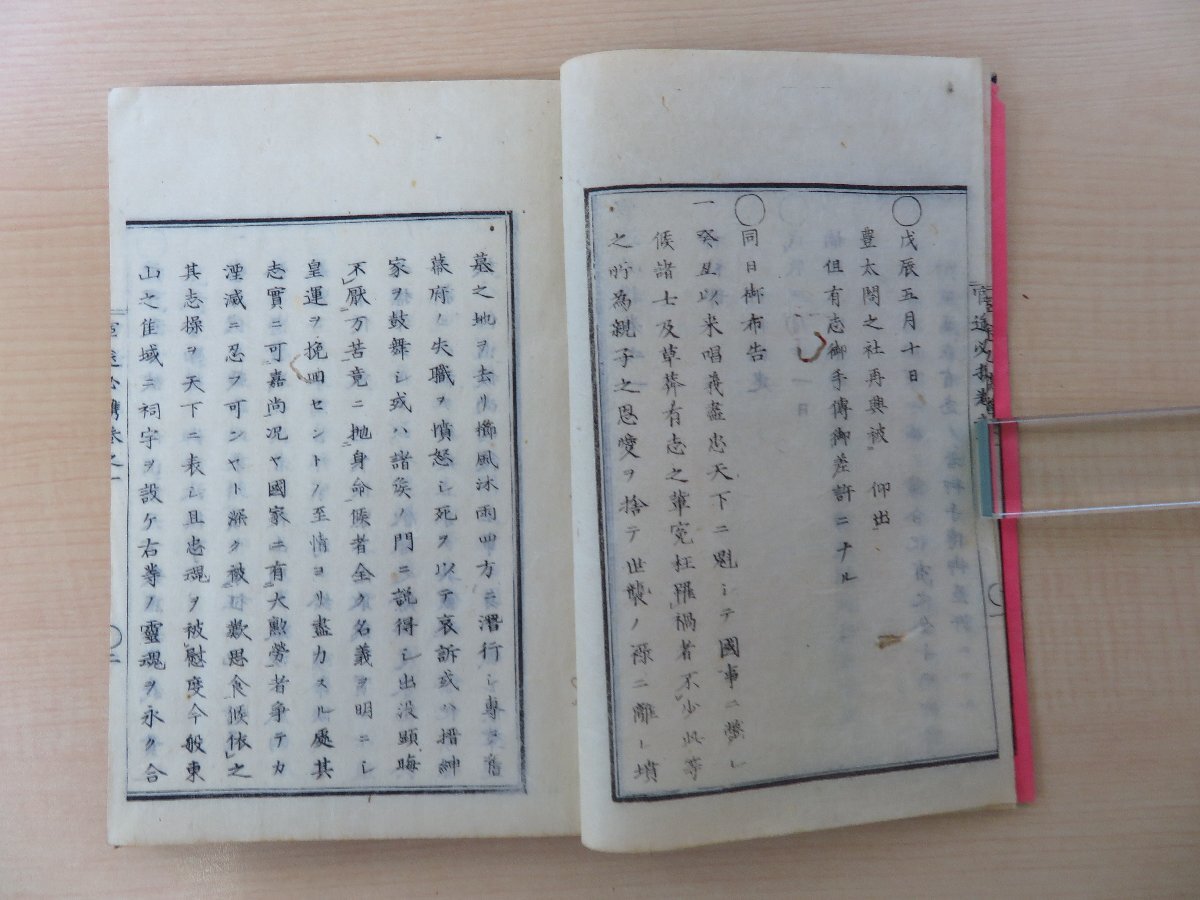 ○戊辰五月十日
豊太閤之社再興被　仰出
候但有志御手傳御差許ニナル
○同日御布告
一癸丑以来唱義盡忠天下ニ魁シテ國事ニ斃レ
候諸士及草莽有志之輩冤枉罹禍者不少此等
之所為親子之恩愛ヲ捨テ世襲ノ禄ニ離レ墳
墓之地ヲ去リ櫛風沐雨四方ニ潜行シ専ラ舊
幕府ノ失職ヲ憤怒シ死ヲ以テ哀訴或ハ搢紳
家ヲ鼓舞シ或ハ諸矦ノ門ニ説得シ出没顕晦
不厭万苦竟ニ抛身命候者全ク名義ヲ明ニシ
皇運ヲ挽回セントノ至情ヨリ盡力スル處其
志實ニ可嘉尚况ヤ國家ニ有大勲勞者争テカ
湮滅ニ忍ヲ可ンヤト深ク被歎思食候依之
其志操ヲ天下ニ表シ且忠魂ヲ被慰度今般東
山之佳域ニ祠宇ヲ設ケ右等ノ靈魂ヲ永ク合